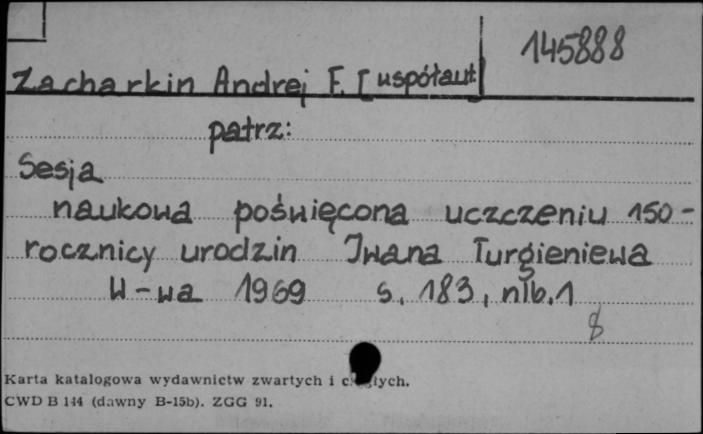 145888
Zacharkin Andrej F. [współaut
patrz:
Sesja
naukowa poświęcona uczczeniu 150-
rocznicy urodzin Iwana Turgieniewa
W-wa 1969 s. 183, nlb. 1
8
Karta katalogowa wydawnictw zwartych i
CWD B 144 (dawny B-15b). ZGG 91.